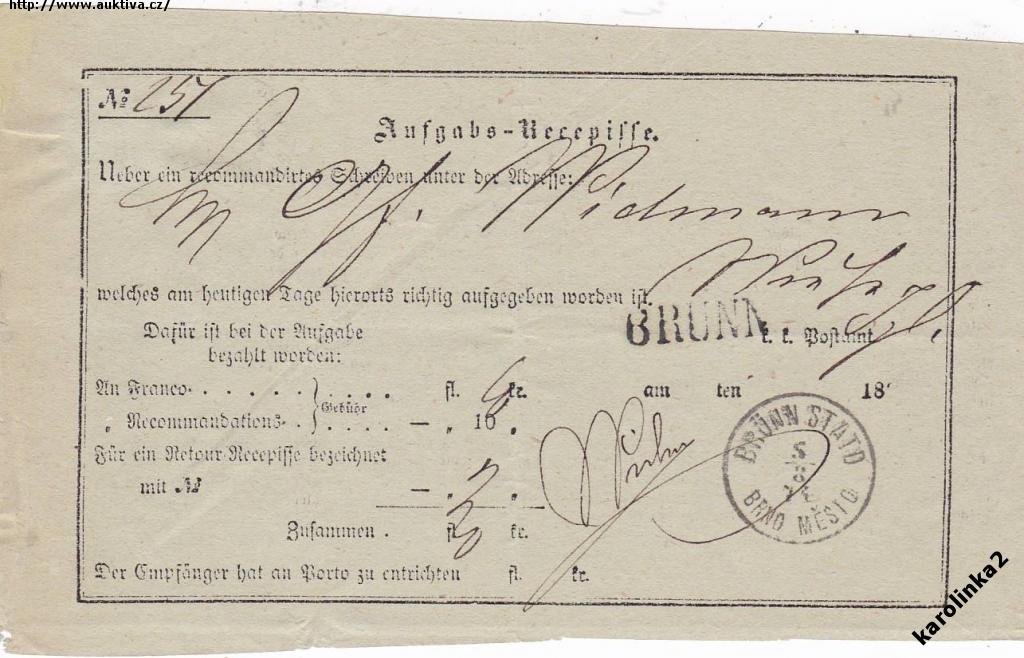 http://www.auktiva.cz/
No 251
Aufgabs-Recepisse.
Ueber ein recommandirtes Schreiben unter der Adresse:
Widmann
welches am heutigen Tage hierorts richtig aufgegeben worden ist.
BRÜNN k. k. Postamt
Dafür ist bei der Aufgabe
bezahlt worden:
An Franco . . . . . . . . . . fl. kr. am ten 18
„ Recommandations- . . Gebühr . . . . — „ 10 „
Für ein Retour-Recepisse bezeichnet
mit No — „ „
Zusammen . fl. kr.
Der Empfänger hat an Porto zu entrichten fl. kr.
BRÜNN STADT
BRNO MĚSTO
karolinka2